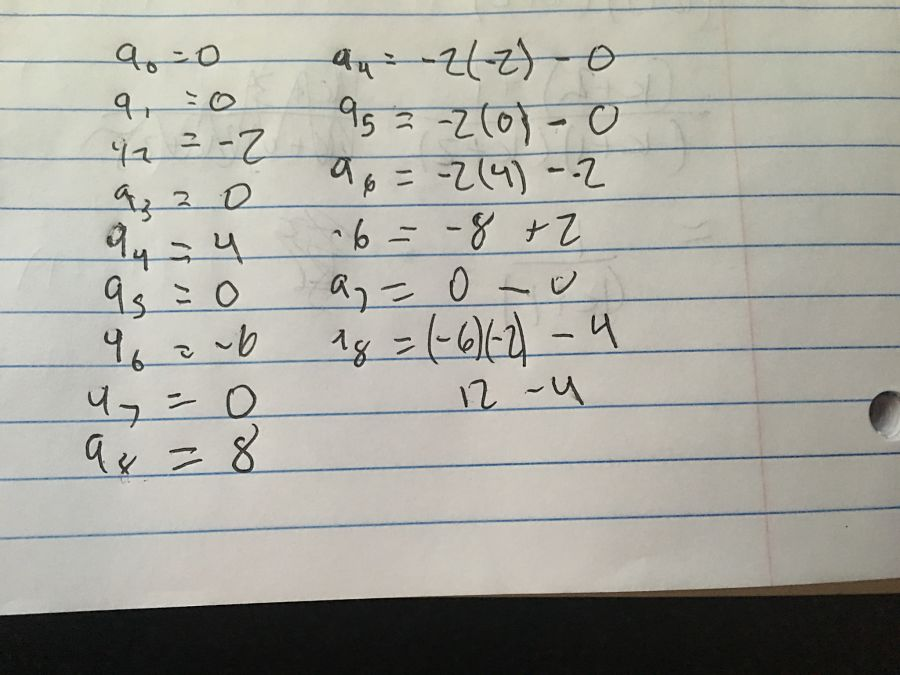 a₀ = 0
a₁ = 0
a₂ = -2
a₃ = 0
a₄ = 4
a₅ = 0
a₆ = -6
a₇ = 0
a₈ = 8
a₄ = -2(-2) - 0
a₅ = -2(0) - 0
a₆ = -2(4) - -2
-6 = -8 + 2
a₇ = 0 - 0
a₈ = (-6)(-2) - 4
12 - 4